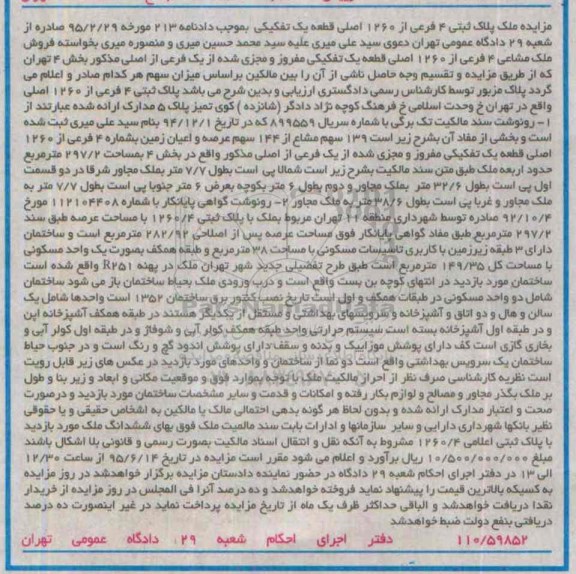 مزایده ملک پلاک ثبتی ۴ فرعی از ۱۲۶۰ اصلی قطعه یک تفکیکی بموجب دادنامه ۲۱۳ مورخه ۹۵/۲/۲۹ صادره از
شعبه ۲۹ دادگاه عمومی تهران دعوی سید علی میری علیه سید محمد حسین میری و منصوره میری بخواسته فروش
ملک مشاعی ۴ فرعی از ۱۲۶۰ اصلی قطعه یک تفکیکی مفروز و مجزی شده از یک فرعی از اصلی مذکور بخش ۴ تهران
که از طریق مزایده و تقسیم وجه حاصل ناشی از آن را بین مالکین براساس میزان سهم هر کدام صادر و اعلام می
گردد پلاک مزبور توسط کارشناس رسمی دادگستری ارزیابی و بدین شرح می باشد پلاک ثبتی ۴ فرعی از ۱۲۶۰ اصلی
واقع در تهران خ وحدت اسلامی خ فرهنگ کوچه نژاد دادگر (شانزده) کوی تمیز پلاک ۵ مدارک ارائه شده عبارتند از
۱- رونوشت سند مالکیت تک برگی با شماره سریال ۸۹۹۵۵۹ که در تاریخ ۹۴/۱۲/۱ بنام سید علی میری ثبت شده
است و بخشی از مفاد آن بشرح زیر است ۱۳۹ سهم مشاع از ۱۴۴ سهم عرصه و اعیان زمین بشماره ۴ فرعی از ۱۲۶۰
اصلی قطعه یک تفکیکی مفروز و مجزی شده از یک فرعی از اصلی مذکور واقع در بخش ۴ بمساحت ۲۹۷/۲ مترمربع
حدود اربعه ملک طبق متن سند مالکیت بشرح زیر است شمالا پی است بطول ۷/۷ متر بملک مجاور شرقا در دو قسمت
اول پی است بطول ۳۲/۶ متر بملک مجاور و دوم بطول ۶ متر بکوچه بعرض ۶ متر جنوبا پی است بطول ۷/۷ متر به
ملک مجاور و غربا پی است بطول ۳۸/۶ متر به ملک مجاور ۲- رونوشت گواهی پایانکار با شماره ۱۱۲۱۰۴۴۰۸ مورخ
۹۲/۱۰/۴ صادره توسط شهرداری منطقه ۱۱ تهران مربوط بملک با پلاک ثبتی ۱۲۶۰/۴ با مساحت عرصه طبق سند
۲۹۷/۲ مترمربع طبق مفاد گواهی پایانکار فوق مساحت عرصه پس از اصلاحی ۲۸۲/۹۲ مترمربع است و ساختمان
دارای ۳ طبقه زیرزمین با کاربری تاسیسات مسکونی با مساحت ۳۸ مترمربع و طبقه همکف بصورت یک واحد مسکونی
با مساحت کل ۱۴۹/۳۵ مترمربع است طبق طرح تفضیلی جدید شهر تهران ملک در پهنه R۲۵۱ واقع شده است
ساختمان مورد بازدید در انتهای کوچه بن بست واقع است و درب ورودی ملک بحیاط ساختمان باز می شود ساختمان
شامل دو واحد مسکونی در طبقات همکف و اول است تاریخ نصب کنتور برق ساختمان ۱۳۵۲ است واحدها شامل یک
سالن و هال و دو اتاق و آشپزخانه و سرویسهای بهداشتی و مستقل از یکدیگر هستند در طبقه همکف آشپزخانه اپن
و در طبقه اول آشپزخانه بسته است سیستم حرارتی واحد طبقه همکف کولر آبی و شوفاژ و در طبقه اول کولر آبی و
بخاری گازی است کف دارای پوشش موزاییک و بدنه و سقف دارای پوشش اندود گچ و رنگ است و در جنوب حیاط
ساختمان یک سرویس بهداشتی واقع است دو نما از ساختمان و واحدهای مورد بازدید در عکس های زیر قابل رویت
است نظریه کارشناسی صرف نظر از احراز مالکیت ملک با توجه بموارد فوق و موقعیت مکانی و ابعاد و زیر بنا و طول
بر ملک بگذر مجاور و مصالح و لوازم بکار رفته و امکانات و قدمت و سایر مشخصات ساختمان مورد بازدید و درصورت
صحت و اعتبار مدارک ارائه شده و بدون لحاظ هر گونه بدهی احتمالی مالک یا مالکین به اشخاص حقیقی و یا حقوقی
نظیر بانکها شهرداری دارایی و سایر سازمانها و ادارات بابت سند مالمیت ملک فوق بهای ششدانگ ملک مورد بازدید
با پلاک ثبتی اعلامی ۱۲۶۰/۴ مشروط به آنکه نقل و انتقال اسناد مالکیت بصورت رسمی و قانونی بلا اشکال باشند
مبلغ ۱۰/۵۰۰/۰۰۰/۰۰۰ ریال برآورد و اعلام می شود مقرر است مزایده در تاریخ ۹۵/۶/۱۴ از ساعت ۱۲/۳۰
الی ۱۳ در دفتر اجرای احکام شعبه ۲۹ دادگاه در حضور نماینده دادستان مزایده برگزار خواهدشد در روز مزایده
به کسیکه بالاترین قیمت را پیشنهاد نماید فروخته خواهدشد و ده درصد آنرا فی المجلس در روز مزایده از خریدار
نقدا دریافت خواهدشد و الباقی حداکثر ظرف یک ماه از تاریخ مزایده پرداخت نماید در غیر اینصورت ده درصد
دریافتی بنفع دولت ضبط خواهدشد
۱۱۰/۵۹۸۵۲ دفتر اجرای احکام شعبه ۲۹ دادگاه عمومی تهران